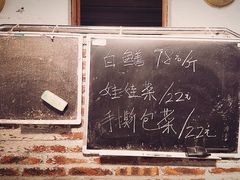 白鳝 78元/斤
娃娃菜/22元
手撕包菜/22元